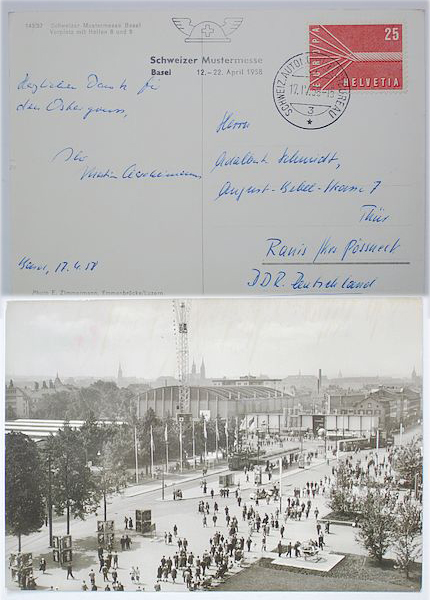 14557 Schweizer Mustermesse Basel
Vorplatz mit Hallen 8 und 9
Schweizer Mustermesse
Basel 12.–22. April 1958
EUROPA
25
HELVETIA
SCHWEIZ. AUTOMOBIL-POSTBUREAU
17.IV.58-18
3
Herzlichen Dank für
den Ostergruss,
Ihr
Martin
Basel, 17.4.58
Herrn
Adalbert Schmidt,
August-Bebel-Strasse 7
Thür
Ranis über Pössneck
DDR Deutschland
Photo E. Zimmermann, Emmenbrücke/Luzern